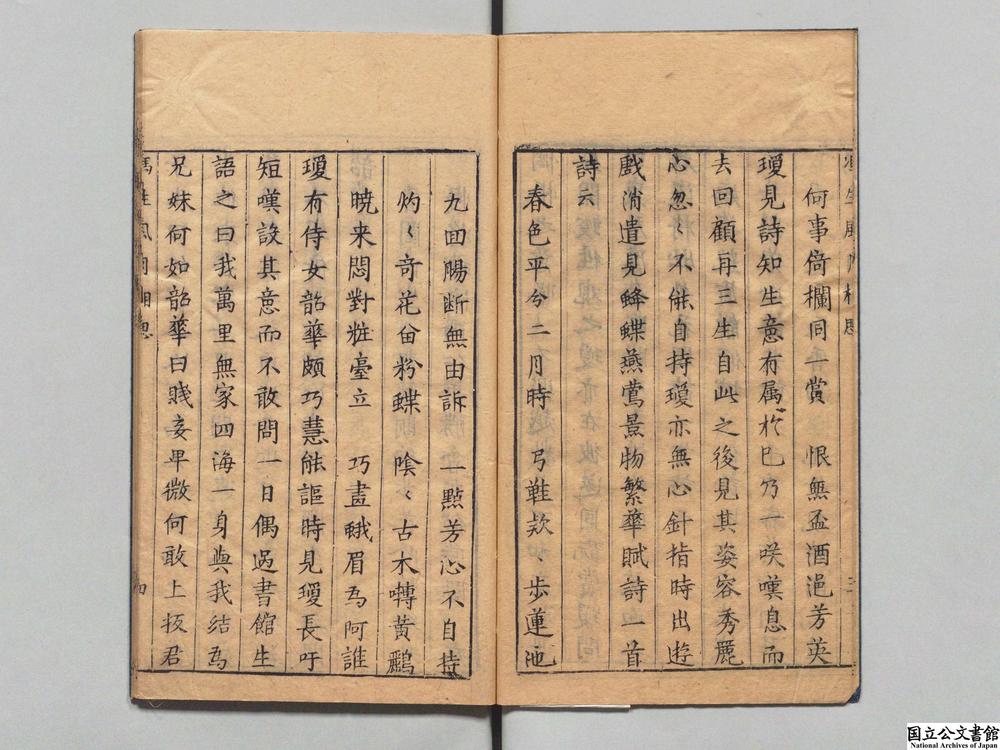 何事倚欄同一賞　恨無盃酒浥芳英
瓊見詩知生意有属於巳乃一咲嘆息而
去回顧再三生自此之後見其姿容秀麗
心忽〻不能自持瓊亦無心針指時出遊
戲消遣見蜂蝶燕鶯景物繁華賦詩一首
詩云
春色平分二月時　弓鞋欵〻步蓮池
九回腸断無由訴　一點芳心不自持
灼〻奇花畄粉蝶　陰〻古木囀黄鸝
曉来悶對粧臺立　巧畫蛾眉為阿誰
瓊有侍女韶華頗巧慧能謳時見瓊長吁
短嘆設其意而不敢問一日偶過書館生
語之曰我萬里無家四海一身與我結為
兄妹何如韶華曰賤妾卑微何敢上扳君
馮生風月相思
四
国立公文書館
National Archives of Japan